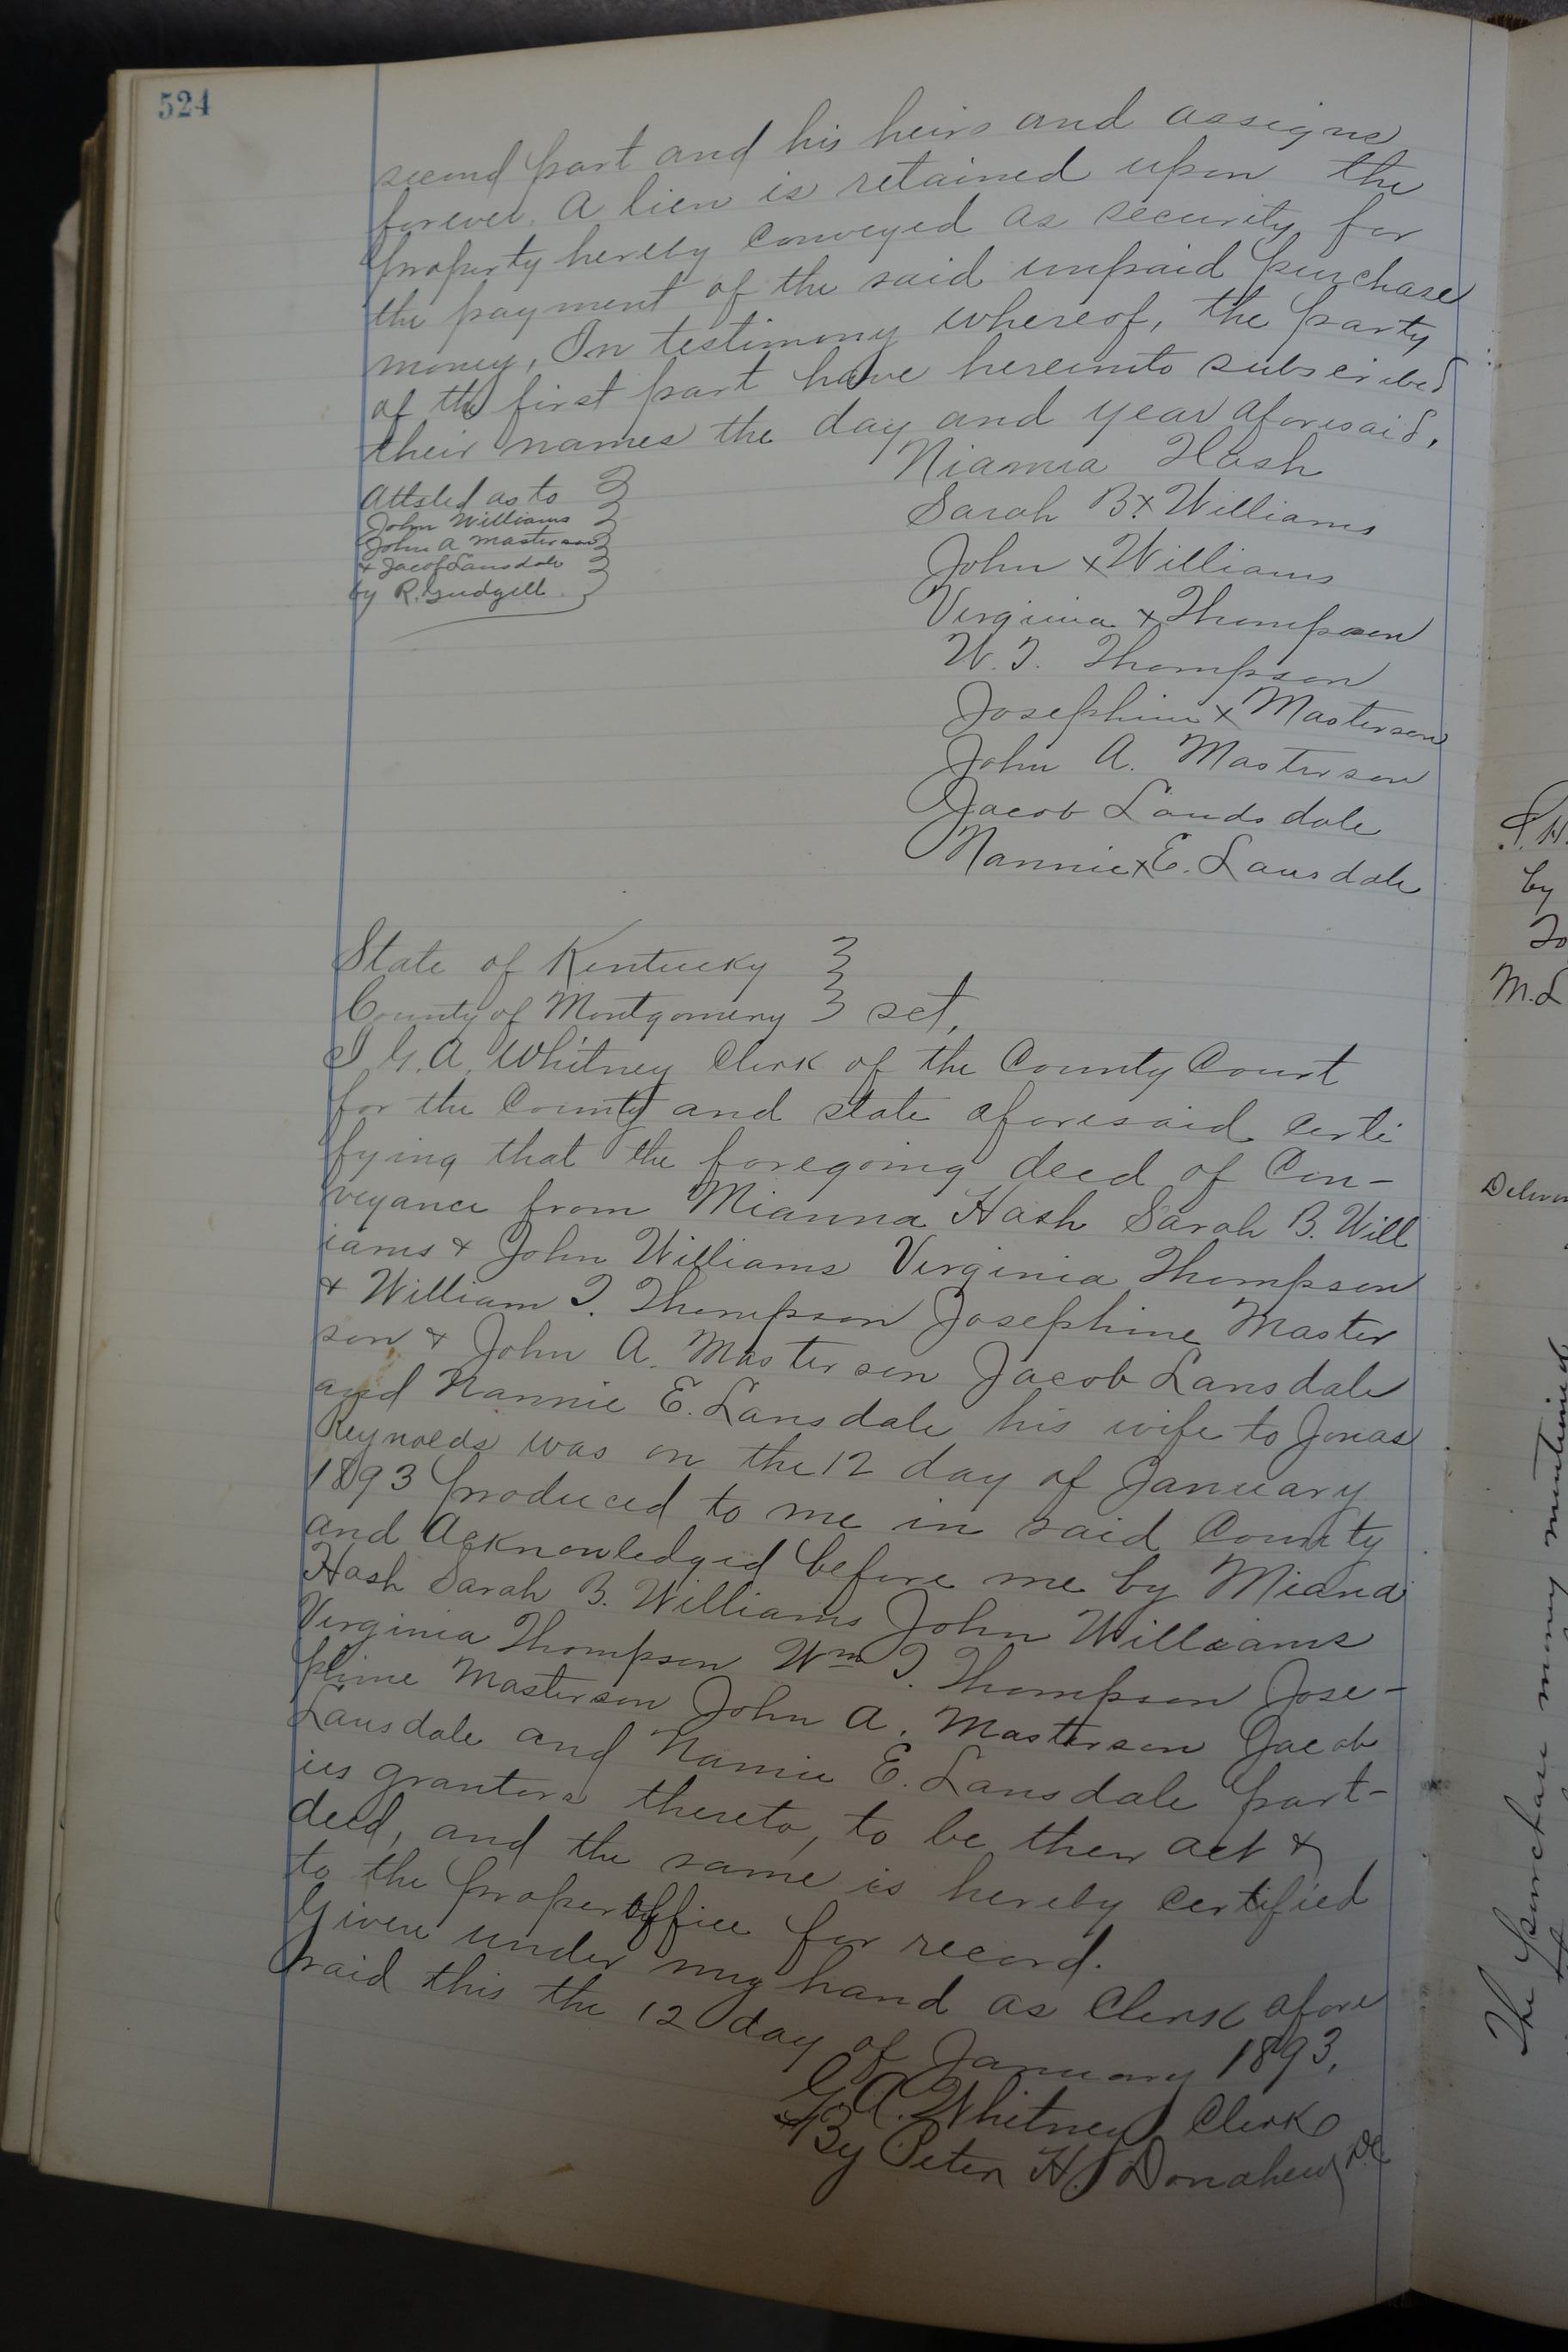 524
second part and his heirs and assigns
forever. A lien is retained upon the
property hereby conveyed as security for
the payment of the said unpaid purchase
money, In testimony whereof, the party
of the first part have hereunto subscribed
their names the day and year aforesaid,
Niamia Hash
Sarah B x Williams
John x Williams
Virginia x Thompson
W. T. Thompson
Josephine x Masterson
John A. Masterson
Jacob Landsdale
Nannie x E. Lansdale
Attsted as to
John Williams
John A Masterson
& Jacob Lansdale
by R. Gudgell
State of Kentucky
County of Montgomery } sct,
I G. A. Whitney Clerk of the County Court
for the County and state aforesaid certi
fying that the foregoing deed of Con-
veyance from Mianna Hash Sarah B. Will
iams & John Williams Virginia Thompson
& William T. Thompson Josephine Master
son & John A. Masterson Jacob Lansdale
and Nannie E. Lansdale his wife to Jonas
Reynolds was on the 12 day of January
1893 produced to me in said County
and Acknowledged before me by Miana
Hash Sarah B. Williams John Williams
Virginia Thompson Wm T. Thompson Jose-
phine Masterson John A. Masterson Jacob
Lansdale and Nannie E. Lansdale part-
ies grantors thereto, to be their act &
deed, and the same is hereby certified
to the proper office for record.
Given under my hand as Clerk afore
said this the 12 day of January 1893.
G. A. Whitney Clerk
By Peter H. Donahew DC
by
To
M. L
The purchase money mentioned